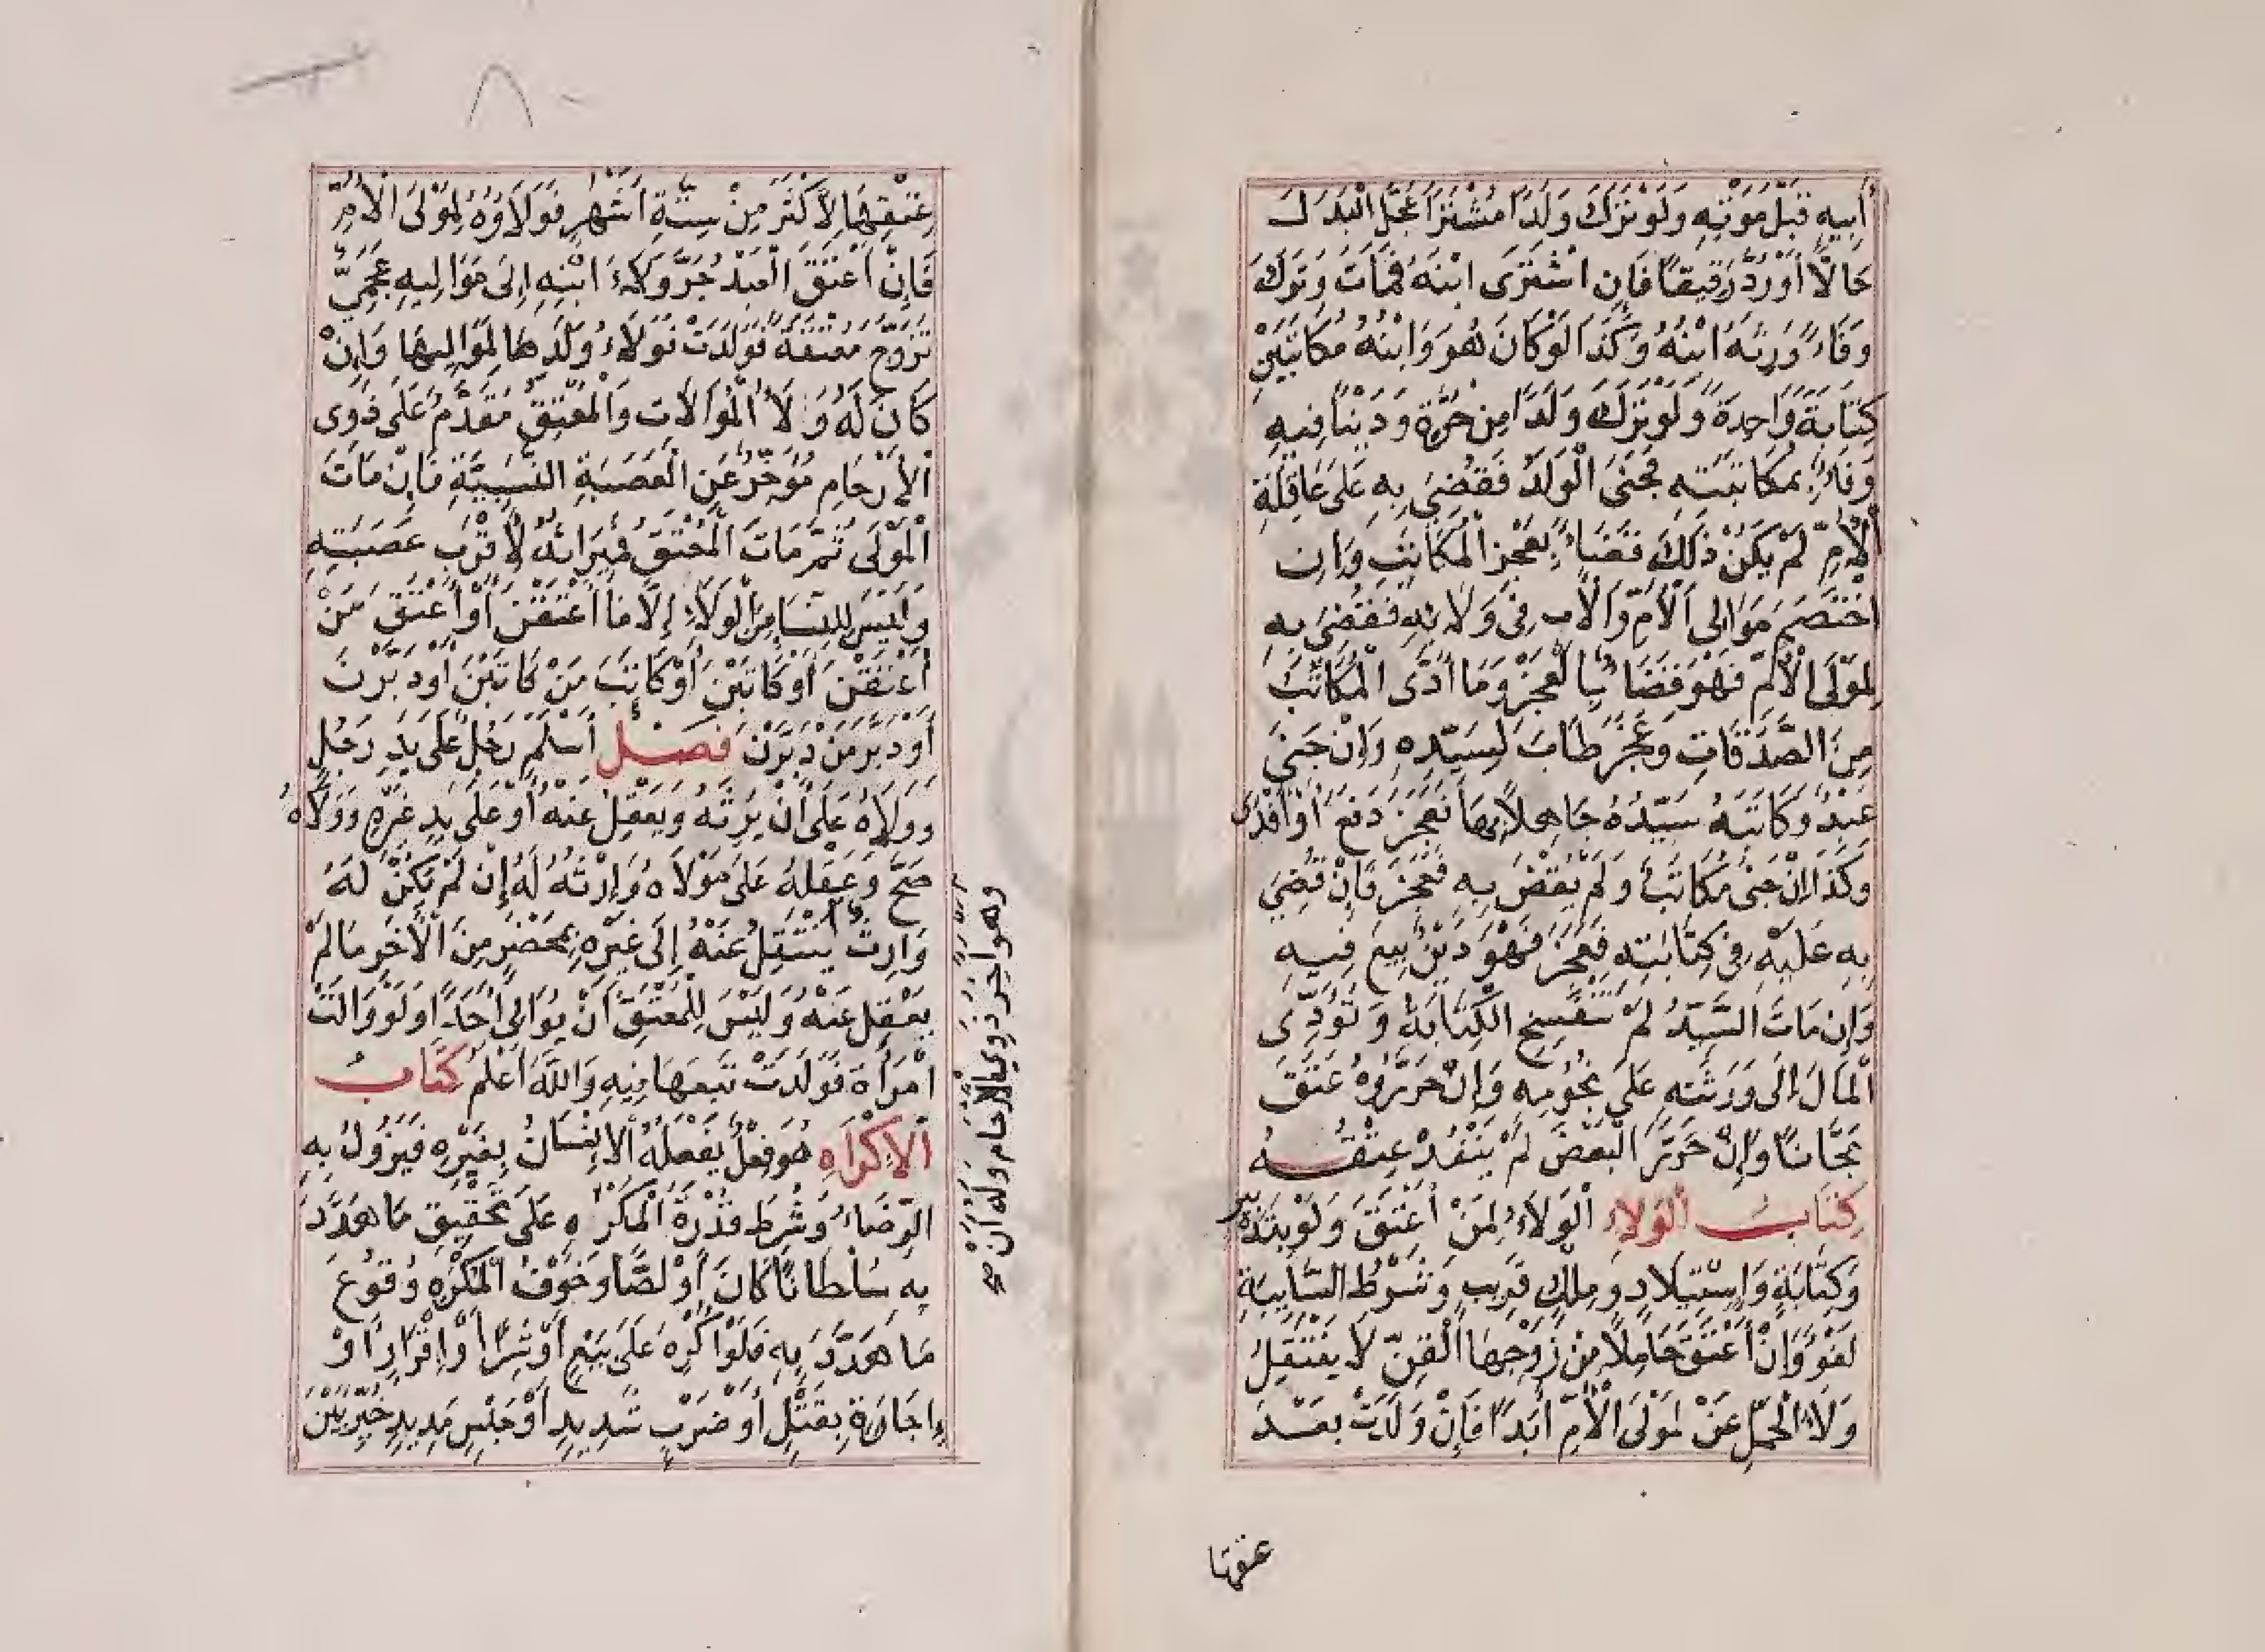 أَبِيهِ قَبْلَ مَوْتِهِ وَلَوْ تَرَكَ وَلَدًا مُشْتَرًا عَجَّلَ الْبَدَلَ
حَالًّا أَوْ رُدَّ رَقِيقًا فَإِنِ اشْتَرَى ابْنَهُ فَمَاتَ وَتَرَكَ
وَفَاءً وَرِثَهُ ابْنُهُ وَكَذَا لَوْ كَانَ هُوَ وَابْنُهُ مُكَاتَبَيْنِ
كِتَابَةً وَاحِدَةً وَلَوْ تَرَكَ وَلَدًا مِنْ حُرَّةٍ وَدَيْنًا فِيهِ
وَفَاءٌ بِمُكَاتَبَتِهِ فَجَنَى الْوَلَدُ فَقُضِيَ بِهِ عَلَى عَاقِلَةِ
الْأُمِّ لَمْ يَكُنْ ذَلِكَ قَضَاءً بِعَجْزِ الْمُكَاتَبِ وَإِنِ
اخْتَصَمَ مَوَالِى الْأُمِّ وَالْأَبِ فِى وَلَائِهِ فَقُضِيَ بِهِ
لِمَوْلَى الْأُمِّ فَهُوَ قَضَاءٌ بِالْعَجْزِ وَمَا أَدَّى الْمُكَاتَبُ
مِنَ الصَّدَقَاتِ وَعَجَزَ طَابَ لِسَيِّدِهِ وَإِنْ جَنَى
عَبْدٌ وَكَاتَبَهُ سَيِّدُهُ جَاهِلًا بِهَا فَعَجَزَ دَفَعَ أَوْ أَفْدَى
وَكَذَا إِنْ جَنَى مُكَاتَبٌ وَلَمْ يُقْضَ بِهِ فَعَجَزَ فَإِنْ قُضِيَ
بِهِ عَلَيْهِ فِى كِتَابَتِهِ فَعَجَزَ فَهُوَ دَيْنٌ بِيعَ فِيهِ
وَإِنْ مَاتَ السَّيِّدُ لَمْ تَنْفَسِخِ الْكِتَابَةُ وَتُؤَدِّى
الْمَالَ إِلَى وَرَثَتِهِ عَلَى نُجُومِهِ وَإِنْ حَرَّرُوهُ عَتَقَ
مَجَّانًا وَإِنْ حَرَّرَ الْبَعْضُ لَمْ يَنْفُذْ عِتْقُهُ
كِتَابُ الْوَلَاءِ الْوَلَاءُ لِمَنْ أَعْتَقَ وَلَوْ بِتَدْبِيرٍ
وَكِتَابَةٍ وَاسْتِيلَادٍ وَمِلْكِ قَرِيبٍ وَشَرْطُ السَّايِبَةِ
لَغْوٌ وَإِنْ أَعْتَقَ حَامِلًا مِنْ زَوْجِهَا الْقِنِّ لَا يَنْتَقِلُ
وَلَاءُ الْحَمْلِ عَنْ لِمَوْلَى الْأُمِّ أَبَدًا فَإِنْ وَلَدَتْ بَعْدَ
عتقها
٨٠
عِتْقِهَا لِأَكْثَرَ مِنْ سِتَّةِ أَشْهُرٍ فَوَلَاؤُهُ لِمَوْلَى الْأُمِّ
فَإِنْ أَعْتَقَ الْعَبْدُ جَرَّ وَلَاءَ ابْنِهِ إِلَى مَوَالِيهِ عَجَمِيٌّ
تَزَوَّجَ مُعْتَقَةً فَوَلَدَتْ فَوَلَاءُ وَلَدِهَا لِمَوَالِيهَا وَإِنْ
كَانَ لَهُ وَلَاءُ الْمُوَالَاتِ وَالْمُعْتِقُ مُقَدَّمٌ عَلَى ذَوِى
الْأَرْحَامِ مُؤَخَّرٌ عَنِ الْعَصَبَةِ النَّسَبِيَّةِ فَإِنْ مَاتَ
الْمَوْلَى ثُمَّ مَاتَ الْمُعْتَقُ فَمِيرَاثُهُ لِأَقْرَبِ عَصَبَتِهِ
وَلَيْسَ لِلنِّسَاءِ مِنَ الْوَلَاءِ إِلَّا مَا أَعْتَقْنَ أَوْ أَعْتَقَ مَنْ
أَعْتَقْنَ أَوْ كَاتَبْنَ أَوْ كَاتَبَ مَنْ كَاتَبْنَ أَوْ دَبَّرْنَ
أَوْ دَبَّرَ مَنْ دَبَّرْنَ فَصْلٌ أَسْلَمَ رَجُلٌ عَلَى يَدِ رَجُلٍ
وَوَلَاهُ عَلَى أَنْ يَرِثَهُ وَيَعْقِلُ عَنْهُ أَوْ عَلَى يَدِ غَيْرِهِ وَوَلَاهُ
صَحَّ وَعَقْلُهُ عَلَى مَوْلَاهُ وَإِرْثُهُ لَهُ إِنْ لَمْ يَكُنْ لَهُ
وَارِثٌ يَنْتَقِلُ عَنْهُ إِلَى غَيْرِهِ بِمَحْضَرٍ مِنَ الْآخَرِ مَا لَمْ
يَعْقِلْ عَنْهُ وَلَيْسَ لِلْمُعْتَقِ أَنْ يُوَالِىَ أَحَدًا وَلَوْ وَالَتْ
امْرَأَةٌ فَوَلَدَتْ تَبِعَهَا فِيهِ وَاللَّهُ أَعْلَمُ كِتَابُ
الْإِكْرَاهِ هُوَ فِعْلٌ يَفْعَلُهُ الْإِنْسَانُ بِغَيْرِهِ فَيَزُولُ بِهِ
الرِّضَاءُ وَشُرِطَ قُدْرَةُ الْمُكْرِهِ عَلَى تَحْقِيقِ مَا هَدَّدَ
بِهِ سُلْطَانًا كَانَ أَوْ لِصًّا وَخَوْفُ الْمُكْرَهِ وُقُوعَ
مَا هَدَّدَ بِهِ فَلَوْ أُكْرِهَ عَلَى بَيْعٍ أَوْ شِرًا أَوْ إِقْرَارٍ أَوْ
إِجَارَةٍ بِقَتْلٍ أَوْ ضَرْبٍ شَدِيدٍ أَوْ حَبْسٍ مَدِيدٍ خُيِّرَ بَيْنَ
وهو آخِرُ ذَوِي الْأَرْحَامِ وَلَهُ أَنْ صح